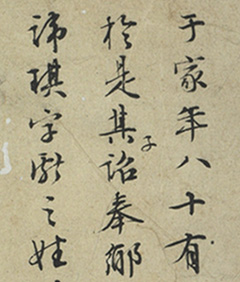 于家年八十有
於是其子詒奉鄉
諱琪字獻之姓